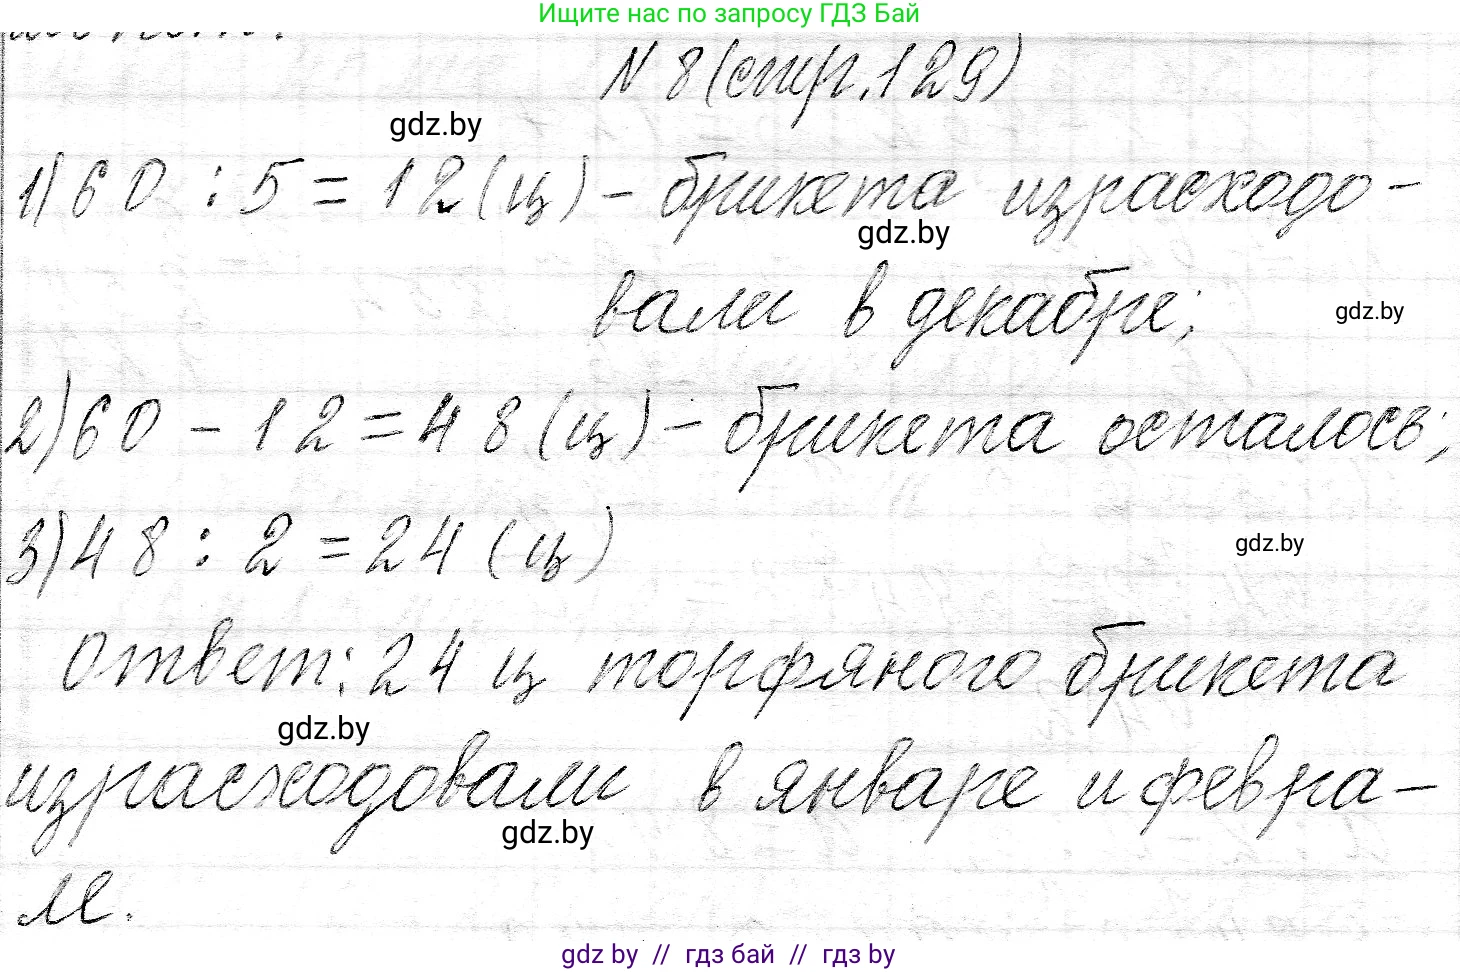 Ищите нас по запросу ГДЗ Бай
N 8 (стр. 129)
gdz.by
1) 60 : 5 = 12 (ц) - брикета израсходо-
gdz.by
вали в декабре;
gdz.by
2) 60 - 12 = 48 (ц) - брикета осталось;
3) 48 : 2 = 24 (ц)
gdz.by
Ответ: 24 ц торфяного брикета
gdz.by
израсходовали в январе и февра-
gdz.by
ле.
gdz by // гдз бай // гдз by